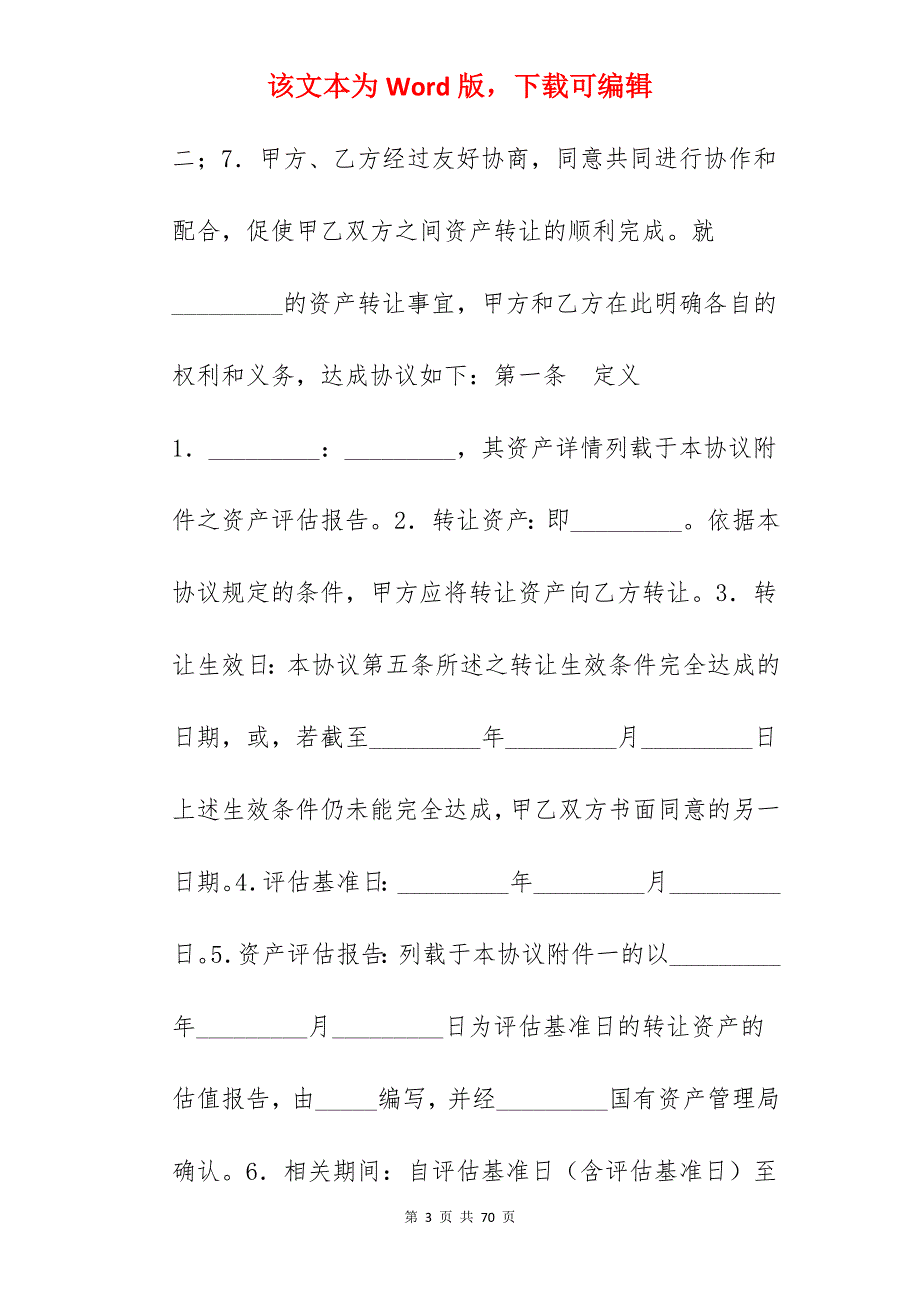 该文本为 Word 版，下载可编辑
二；7．甲方、乙方经过友好协商，同意共同进行协作和
配合，促使甲乙双方之间资产转让的顺利完成。就
_________的资产转让事宜，甲方和乙方在此明确各自的
权利和义务，达成协议如下：第一条　定义
1．_________：_________，其资产详情列载于本协议附
件之资产评估报告。2．转让资产：即_________。依据本
协议规定的条件，甲方应将转让资产向乙方转让。3．转
让生效日：本协议第五条所述之转让生效条件完全达成的
日期，或，若截至_________年_________月_________日
上述生效条件仍未能完全达成，甲乙双方书面同意的另一
日期。4．评估基准日：_________年_________月_________
日。5．资产评估报告：列载于本协议附件一的以_________
年_________月_________日为评估基准日的转让资产的
估值报告，由_____编写，并经_________国有资产管理局
确认。6．相关期间：自评估基准日（含评估基准日）至
第 3 页 共 70 页